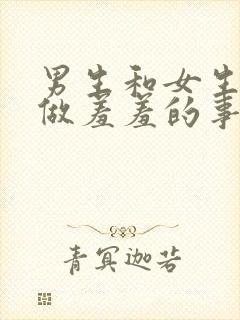 男生和女生
做羞羞的事
青冥迦若